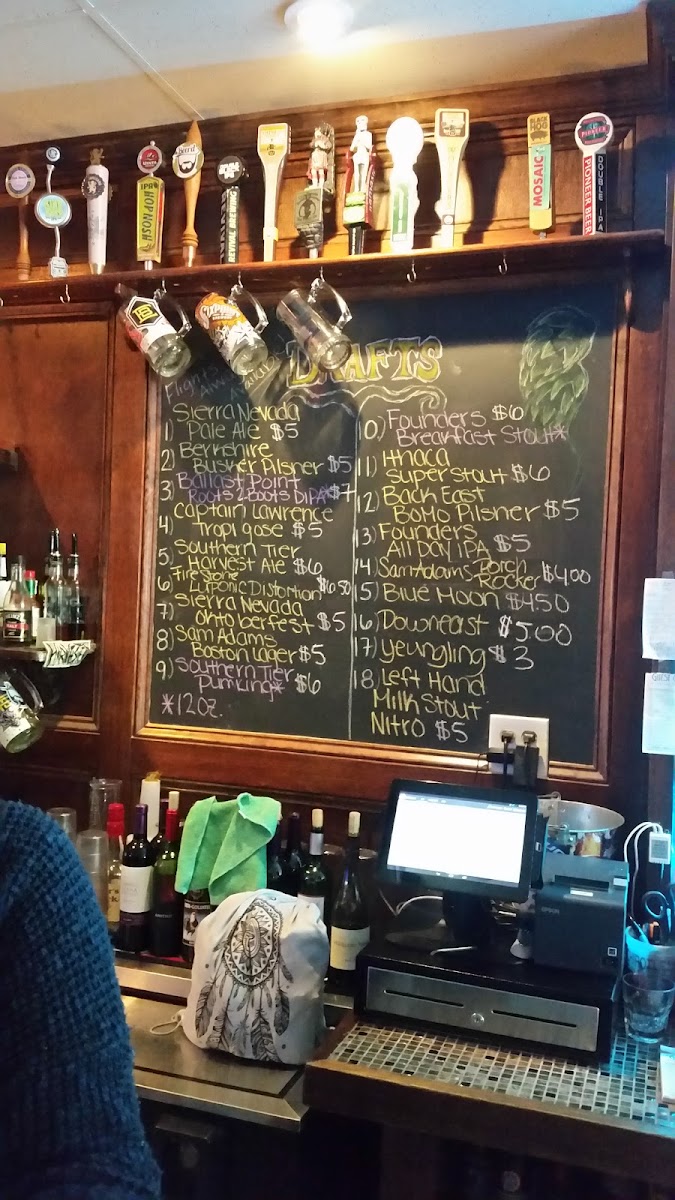 IPA
HOP NOSH
REVIVE BREWING
BLACK HOG
MOSAIC
PIONEER
PIONEER BEER
DOUBLE IPA
DRAFTS
Flights
Sierra Nevada
1) Pale Ale $5
Berkshire
2) Busker Pilsner $5
3) Ballast Point
Roots 2 Boots DIPA* $7
Captain Lawrence
4) Tropi gose $5
5) Southern Tier
Harvest Ale $6
6) Firestone
Luponic Distortion $6.50
7) Sierra Nevada
Oktoberfest $5
8) Sam Adams
Boston Lager $5
9) Southern Tier
Pumking* $6
*12oz.
10) Founders $6
Breakfast Stout*
11) Ithaca
Super Stout $6
12) Back East
BoMo Pilsner $5
13) Founders
All Day IPA $5
14) Sam Adams Porch
Rocker $4.00
15) Blue Moon $4.50
16) Downeast $5.00
17) Yeungling $3
18) Left Hand
Milk Stout
Nitro $5
EPSON